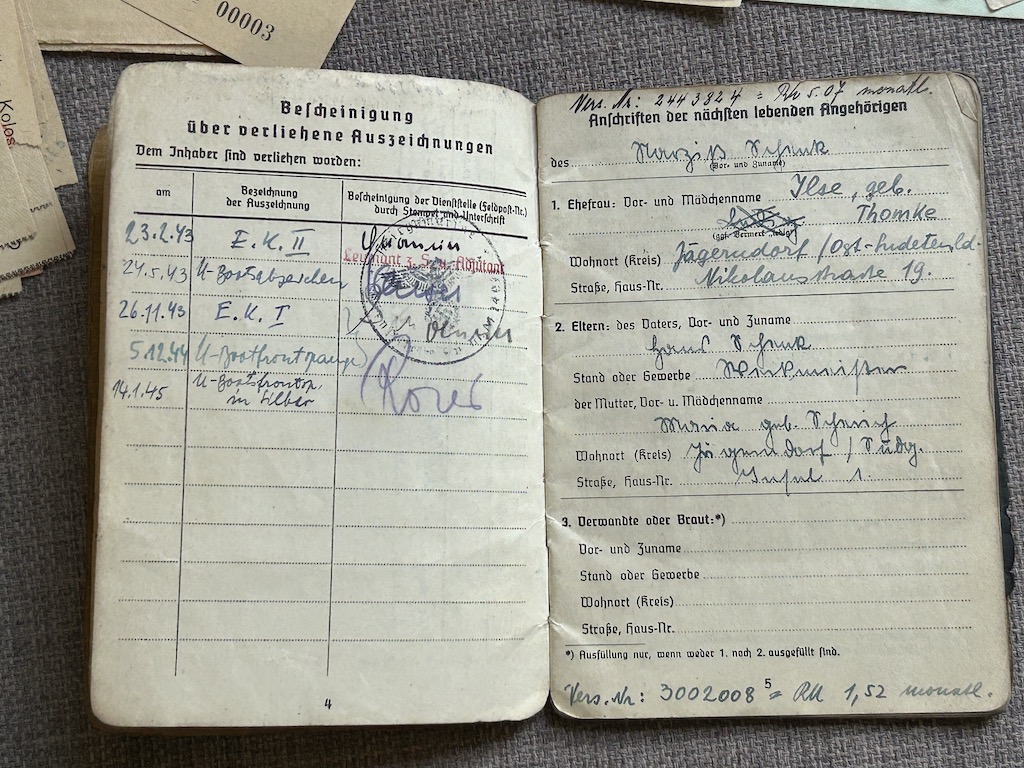 00003
Kolos
Bescheinigung
über verliehene Auszeichnungen
Dem Inhaber sind verliehen worden:
am
Bezeichnung
der Auszeichnung
Bescheinigung der Dienststelle (Feldpost-Nr.)
durch Stempel und Unterschrift
23.2.43 E.K. II
Leutnant z. S. u. Adjutant
24.5.43 U-Bootsabzeichen
26.11.43 E.K. I
5.12.44 U-Bootfrontspange
14.1.45 U-Bootsfrontsp.
in Silber
4
Vers. Nr: 2443824 = RM 5.07 monatl.
Anschriften der nächsten lebenden Angehörigen
des Narziß Schenk
(Vor- und Zuname)
1. Ehefrau: Vor- und Mädchenname Ilse, geb.
Thomke
(ggf. Vermerk „ledig")
Wohnort (Kreis) Jägerndorf / Ost-Sudetenld.
Straße, Haus-Nr. Nikolausstraße 19.
2. Eltern: des Vaters, Vor- und Zuname
Hans Schenk
Stand oder Gewerbe Werkmeister
der Mutter, Vor- u. Mädchenname
Maria geb.
Wohnort (Kreis) Jägerndorf / Sudg.
Straße, Haus-Nr. 1.
3. Verwandte oder Braut:*)
Vor- und Zuname
Stand oder Gewerbe
Wohnort (Kreis)
Straße, Haus-Nr.
*) Ausfüllung nur, wenn weder 1. noch 2. ausgefüllt sind.
Vers. Nr: 3002008 5 = RM 1,52 monatl.